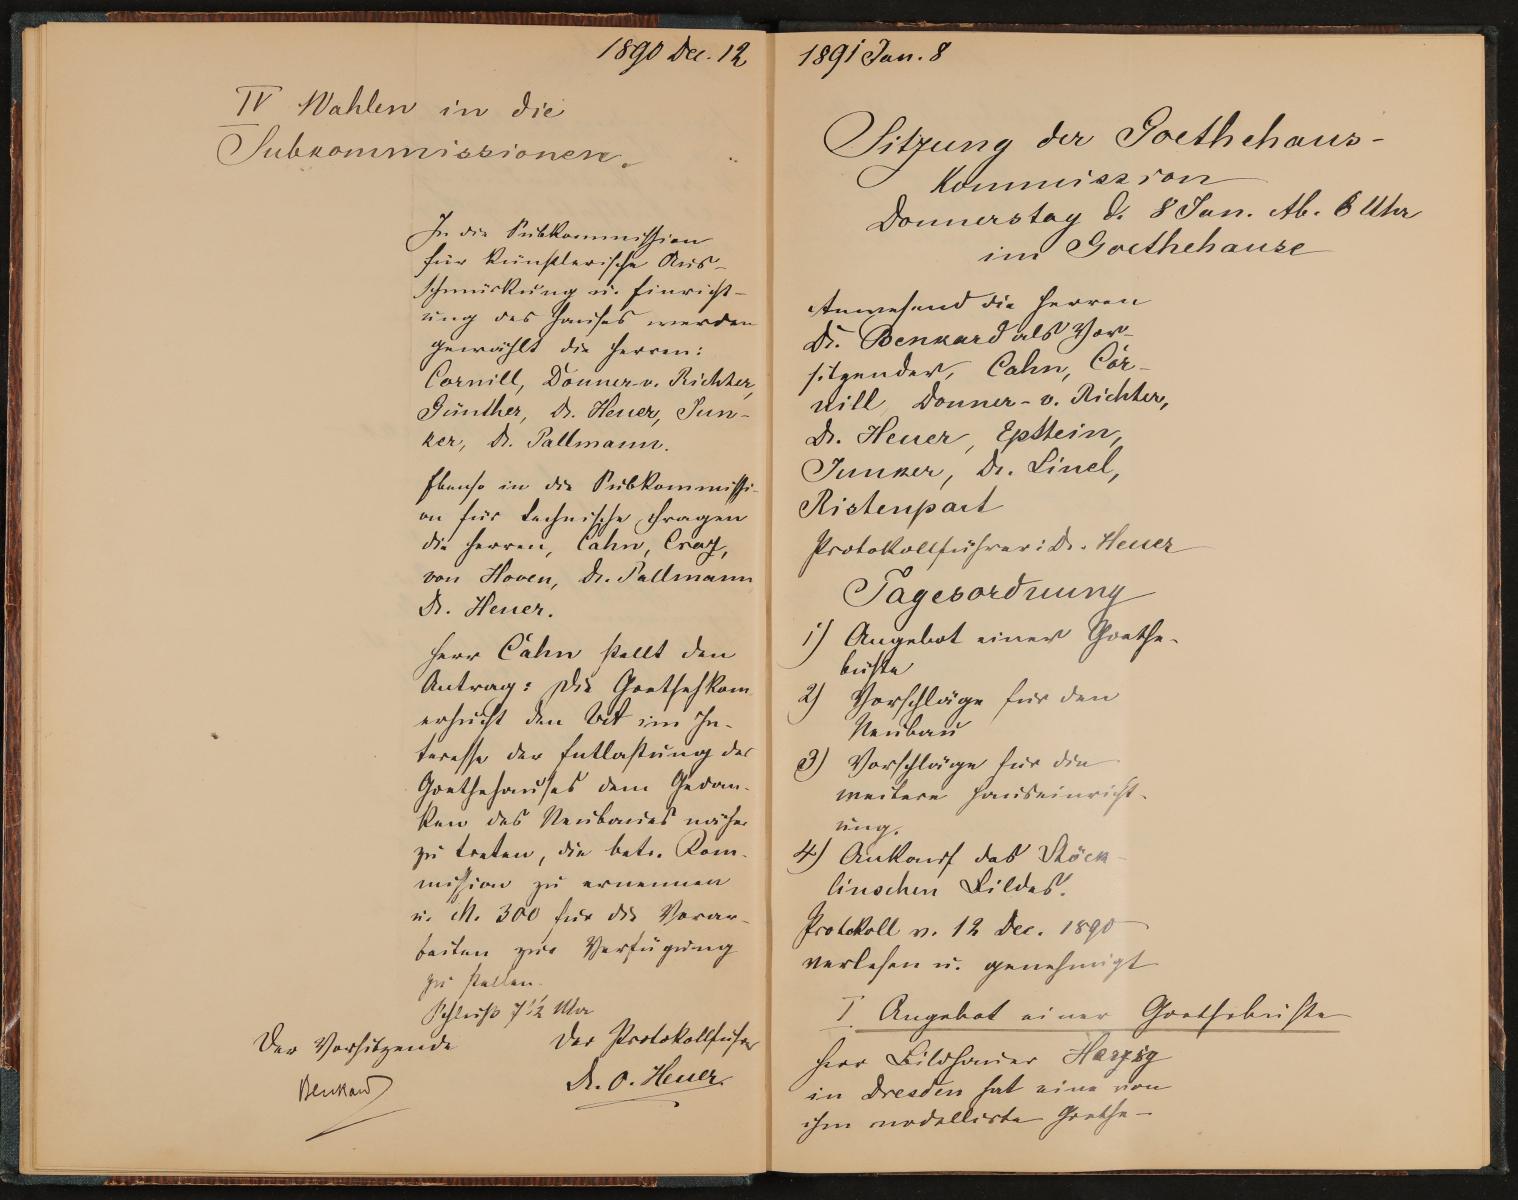 1890 Dec. 12
IV Wahlen in die
Subkommissionen.
In die Subkommission
für künstlerische Aus-
schmückung u. Einricht-
ung des Hauses werden
gewählt die Herren:
Cornill, Donner-v. Richter,
Günther, Dr. Heuer, Jun-
ker, Dr. Pallmann.
Ebenso in die Subkommissi-
on für technische Fragen
die Herren, Cahn,
von Hoven, Dr. Pallmann
Dr. Heuer.
Herr Cahn stellt den
Antrag: Die Goethehkom
ersucht den VA im In-
teresse der Entlastung des
Goethehauses dem Gedan-
ken des Neubaues näher
zu treten, die betr. Kom-
mission zu ernennen
u. M. 300 für die Vorar-
beiten zur Verfügung
zu stellen.
Schluß 7 1/2 Uhr
Der Vorsitzende
Benkard
Der Protokollführer
Dr. O. Heuer.
1891 Jan. 8
Sitzung der Goethehaus-
Kommission
Donnerstag d. 8 Jan. Ab. 6 Uhr
im Goethehause
Anwesend die Herren
Dr. Benkard als Vor-
sitzender, Cahn, Cor-
nill Donner-v. Richter,
Dr. Heuer, Epstein,
Junker, Dr. Linel,
Ristenpart
Protokollführer: Dr. Heuer
Tagesordnung
1) Angebot einer Goethe-
büste
2) Vorschläge für den
Neubau
3) Vorschläge für die
weitere Hauseinricht-
ung.
4) Ankauf des Stöck-
linschen Bildes.
Protokoll v. 12 Dec. 1890
verlesen u. genehmigt
I. Angebot einer Goethebüste
Herr Bildhauer Herzig
in Dresden hat eine von
ihm modellirte Goethe-